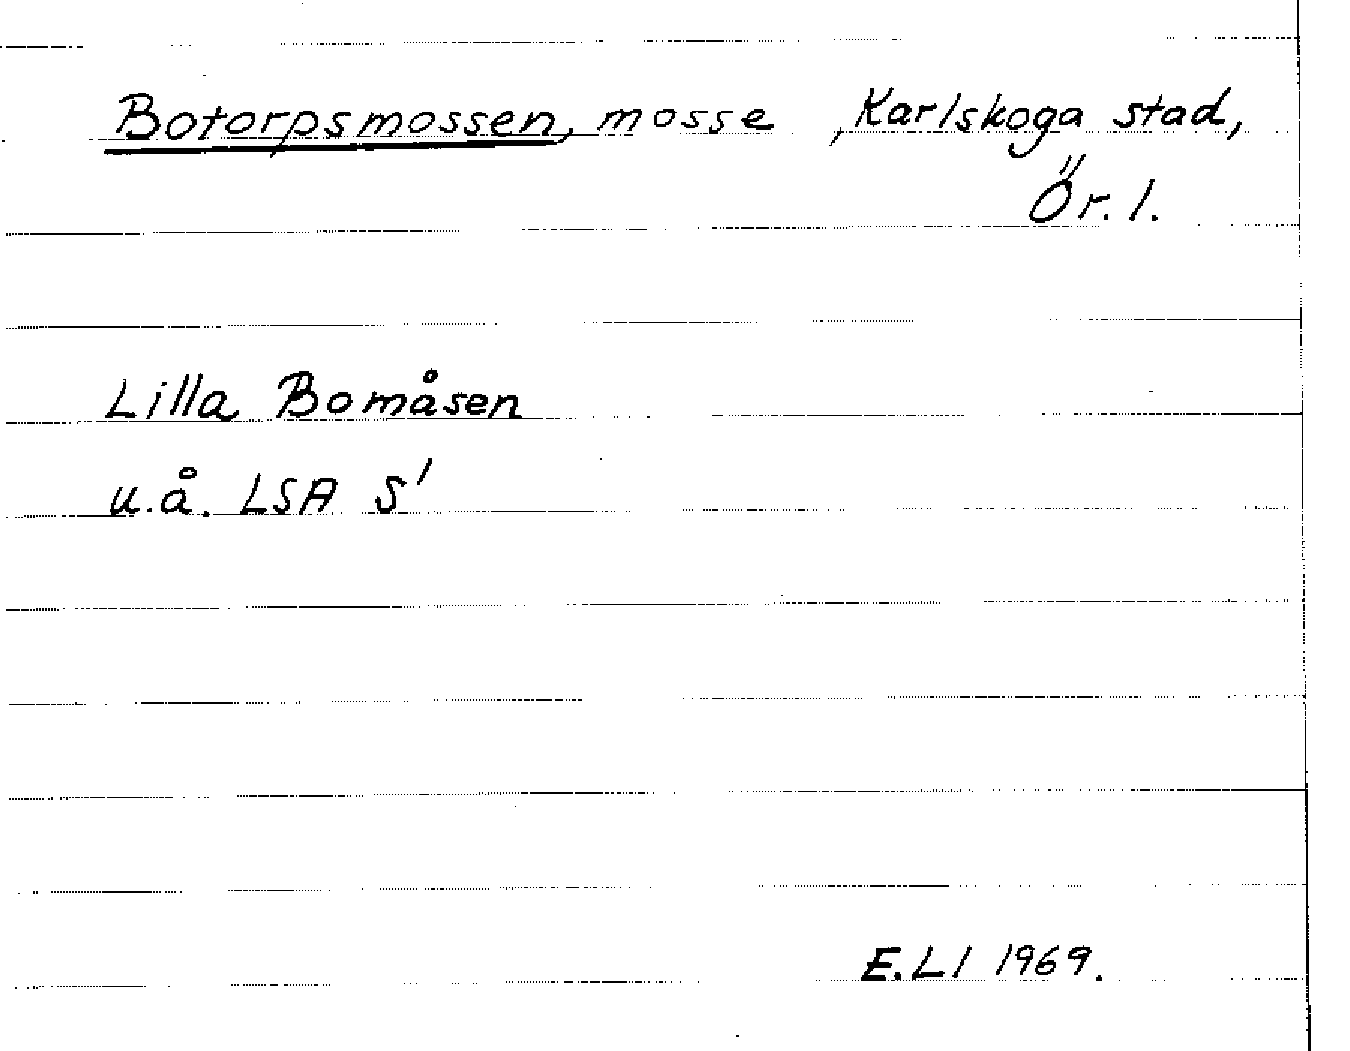 Botorpsmossen, mosse , Karlskoga stad,
Ör. l.
Lilla Bomåsen
u.å. LSA S'
E.Ll 1969.